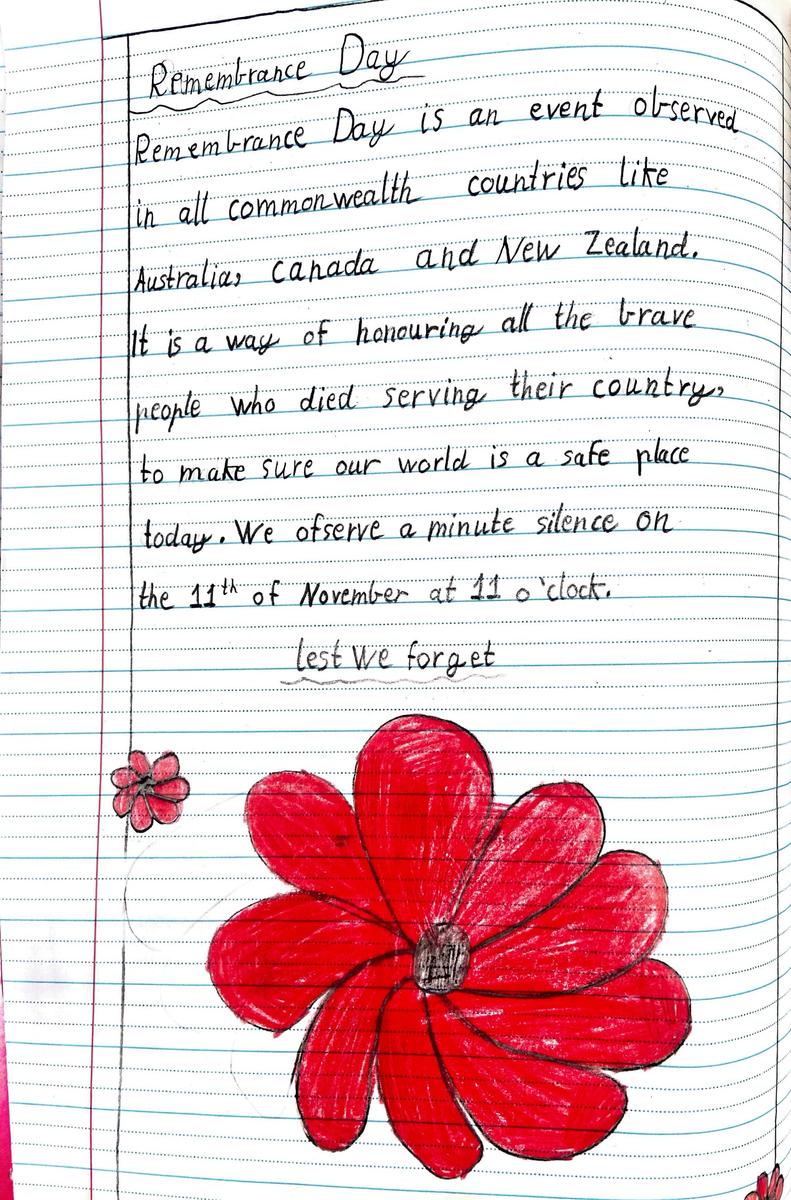 Remembrance Day
Remembrance Day is an event observed
in all commonwealth countries like
Australia, Canada and New Zealand.
It is a way of honouring all the brave
people who died serving their country,
to make sure our world is a safe place
today. We ofserve a minute silence on
the 11th of November at 11 o'clock.
lest We forget